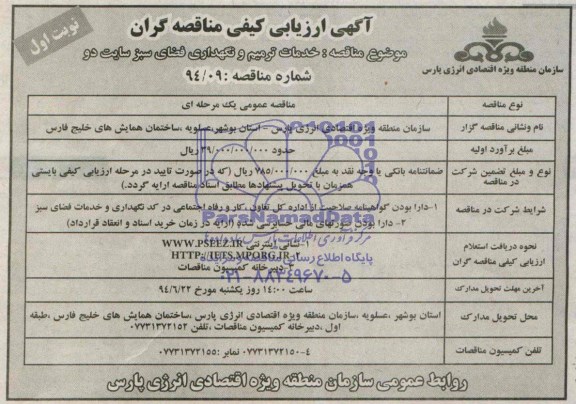 نوبت اول
آگهی ارزیابی کیفی مناقصه گران
موضوع مناقصه : خدمات ترمیم و نگهداری فضای سبز سایت دو
شماره مناقصه : ۹۴/۰۹
سازمان منطقه ویژه اقتصادی انرژی پارس
نوع مناقصه
مناقصه عمومی یک مرحله ای
نام ونشانی مناقصه گزار
سازمان منطقه ویژه اقتصادی انرژی پارس - استان بوشهر،عسلویه ،ساختمان همایش های خلیج فارس
مبلغ برآورد اولیه
حدود ۳۹/۰۰۰/۰۰۰/۰۰۰ ریال
نوع و مبلغ تضمین شرکت در مناقصه
ضمانتنامه بانکی یا وجه نقد به مبلغ ۷۸۵/۰۰۰/۰۰۰ ریال (که در صورت تایید در مرحله ارزیابی کیفی بایستی
همزمان با تحویل پیشنهادها مطابق اسناد مناقصه ارایه گردد.)
شرایط شرکت در مناقصه
۱-دارا بودن گواهینامه صلاحیت از اداره کل تعاون ، کار و رفاه اجتماعی در کد نگهداری و خدمات فضای سبز
۲- دارا بودن صورتهای مالی حسابرسی شده (ارایه در زمان خرید اسناد و انعقاد قرارداد)
نحوه دریافت استعلام
ارزیابی کیفی مناقصه گران
۱-نشانی اینترنتی WWW.PSEEZ.IR
HTTP://IETS.MPORG.IR
۲-دبیرخانه کمیسیون مناقصات
آخرین مهلت تحویل مدارک
ساعت ۱۴:۰۰ روز یکشنبه مورخ ۹۴/۶/۲۲
محل تحویل مدارک
استان بوشهر ،عسلویه ،سازمان منطقه ویژه اقتصادی انرژی پارس ،ساختمان همایش های خلیج فارس ،طبقه
اول ،دبیرخانه کمیسیون مناقصات ،تلفن ۰۷۷۳۱۳۷۲۱۵۲
تلفن کمیسیون مناقصات
۰۷۷۳۱۳۷۲۱۵۰-۴ نمابر :۰۷۷۳۱۳۷۲۱۵۵
روابط عمومی سازمان منطقه ویژه اقتصادی انرژی پارس
ParsNamadData
پایگاه اطلاع رسانی مناقصه و مزایده
۰۲۱-۸۸۳۴۹۶۷۰-۵